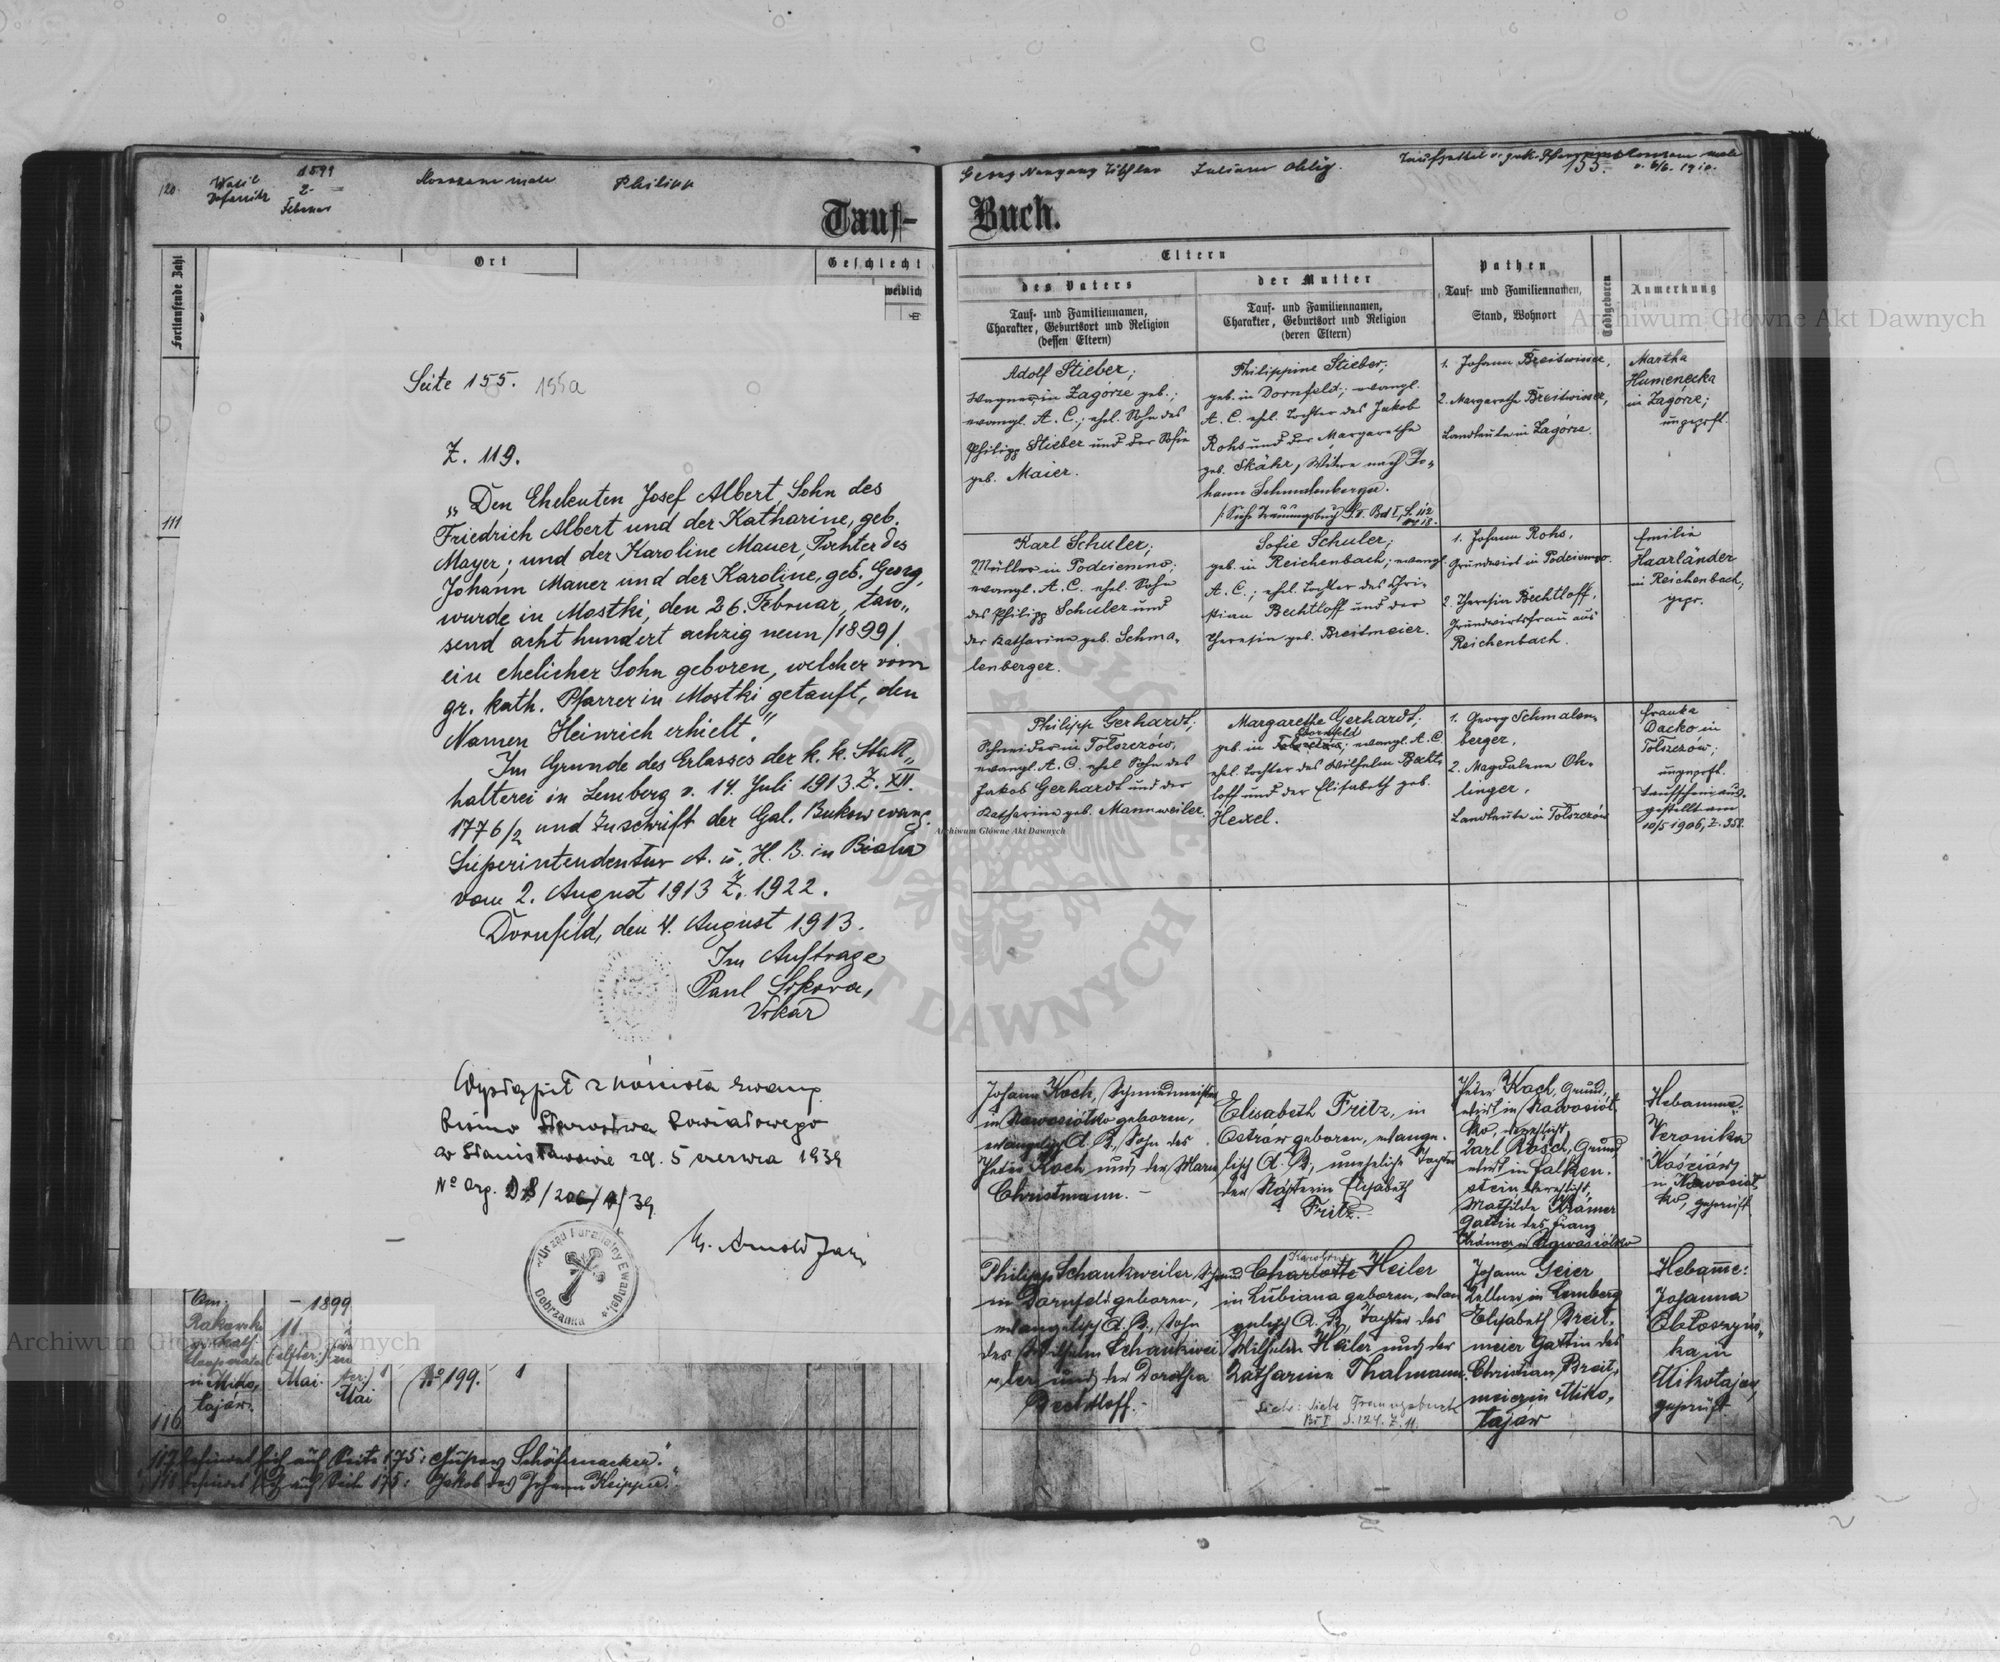 120.
Wasil
1899
2.
Februar
Philipp
155.
Tauf-
Buch.
Fortlaufende Zahl
Ort
Geschlecht
weiblich
111
Seite 155. 155a
Z. 119.
„Den Eheleuten Josef Albert, Sohn des
Friedrich Albert und der Katharine, geb.
Mayer; und der Karoline Mauer, Tochter des
Johann Mauer und der Karoline, geb. Georg,
wurde in Mostki, den 26. Februar, tau„
send acht hundert achzig neun /1899/
ein ehelicher Sohn geboren, welcher vom
gr. kath. Pfarrer in Mostki getauft, den
Namen Heinrich erhielt."
Im Grunde des Erlasses der k. k. Statt„
halterei in Lemberg v. 14. Juli 1913. Z. XII.
1776/2 und Zuschrift der Gal. Bukow evang.
Superintendentur A. u. H. B. in Biala
vom 2. August 1913 Z. 1922.
Dornfeld, den 4. August 1913.
Im Auftrage
Paul
Vikar
Wystąpił z kościoła Ewang.
Pismo Starostwa Powiatowego
w Stanisławowie
5 czerwca 1939
Urząd Parafialny Ewangel.
Dobrzanka
1899
11
(elfter)
Mai.
Mai
(No 199.
1
116
117 befindet sich auf Seite 175: Gustav Schäfernacker."
118 befindet sich auf Seite 175: Jakob des Johann Keipper."
Eltern
des Vaters
Tauf- und Familiennamen,
Charakter, Geburtsort und Religion
(dessen Eltern)
der Mutter
Tauf- und Familiennamen,
Charakter, Geburtsort und Religion
(deren Eltern)
Pathen
Tauf- und Familiennamen,
Stand, Wohnort
Todtgeboren
Anmerkung
Adolf Stieber;
Wagner in Zagórze geb.;
evangl. A. C.; ehel. Sohn des
Philipp Stieber und der Sofie
geb. Maier.
Philippine Stieber;
geb. in Dornfeld; evangl.
A. C. ehel. Tochter des Jakob
Rohs und der Margarethe
geb. Skähr, Witwe nach Jo„
hann Schmalenberger.
1. Johann Breitwieser,
2. Margarethe Breitwieser,
Landleute in Zagórze.
Martha
Humenecka
in Zagórze;
ungeprft.
Karl Schuler;
Müller in Podciemno;
evangl. A. C. ehel. Sohn
des Philipp Schuler und
der Katharina geb. Schma„
lenberger.
Sofie Schuler;
geb. in Reichenbach; evangl.
A. C.; ehel. Tochter des Chri„
stian Bechtloff und der
Theresia geb. Breitmeier.
1. Johann Rohs,
Grundwirt in Podciemno.
2. Theresia Bechtloff,
Grundwirtsfrau aus
Reichenbach.
Emilie
Haarländer
in Reichenbach,
gepr.
Philipp Gerhardt;
Schneider in Tołszczów,
evangl. A. C. ehel Sohn des
Jakob Gerhardt und der
Katharina geb. Mannweiler.
Margarethe Gerhardt;
Dornfeld
geb. in Tołszczów; evangl. A. C.
ehel. Tochter des Wilhelm Becht„
loff und der Elisabeth geb.
Hexel.
1. Georg Schmalen„
berger,
2. Magdalena Oh„
linger,
Landleute in Tołszczów
Franka
Dacko in
Tołszczów;
ungeprft.
Taufschein aus„
gestellt am
10/5 1906, Z. 358.
Johann Koch, Schmiedmeister
in Nowosiółko geboren,
evangelisch A. B., Sohn des
Peter Koch und der Marie
Christmann. –
Elisabeth Fritz, in
Ostrów geboren, evange„
lisch A. B., uneheliche Tochter
der Näherin Elisabeth
Fritz.
Peter Koch, Grund„
wirt in Nowosiół„
ko, verehlicht,
Karl Rosch, Grund
wirt in Falken„
stein, verehlicht,
Mathilde Krämer
Gattin des Franz
Krämer in Nowosiółko
Hebamme:
Veronika
Kościów
in Nowosiół„
ko, geprüft
Philipp Schankweiler,
in Dornfeld geboren,
evangelisch A. B., Sohn
des Wilhelm Schankwei„
ler und der Dorothea
Bechtloff. –
Karoline
Charlotte Heiler
in Lubiana geboren, evan
gelisch A. B., Tochter des
Wilhelm Heiler und der
Katharina Thalmann.
Bd I S. 124. Z. 11.
Johann Geier
Kellner in Lemberg
Elisabeth Breit„
meier Gattin des
Christian Breit„
meier in Miko„
łajów
Hebamme:
Johanna
Obłoszyńs„
ka in
Mikołajów,
geprüft
Archiwum Główne Akt Dawnych
Archiwum Główne Akt Dawnych
Archiwum Główne Akt Dawnych